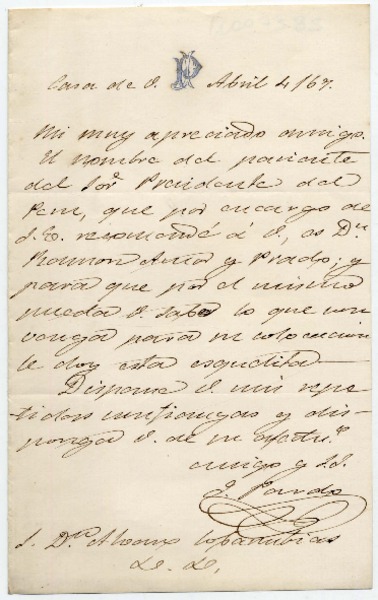 Casa de V. P Abril 4/67.
Mi muy apreciado amigo.
El nombre del pariente
del Sor. Presidente del
Perú, que por encargo de
S. E. recomendé á V, es Dn.
Ramon y Prado; y
para que por el mismo
pueda V saber lo que con
venga para su colocacion
le doy esta esquelita—
Dispense V. mis repe-
tidas confianzas y dis-
ponga V. de su afectu.
amigo y S.S.
J. Pardo
S. Dn. Alvaro Covarrubias